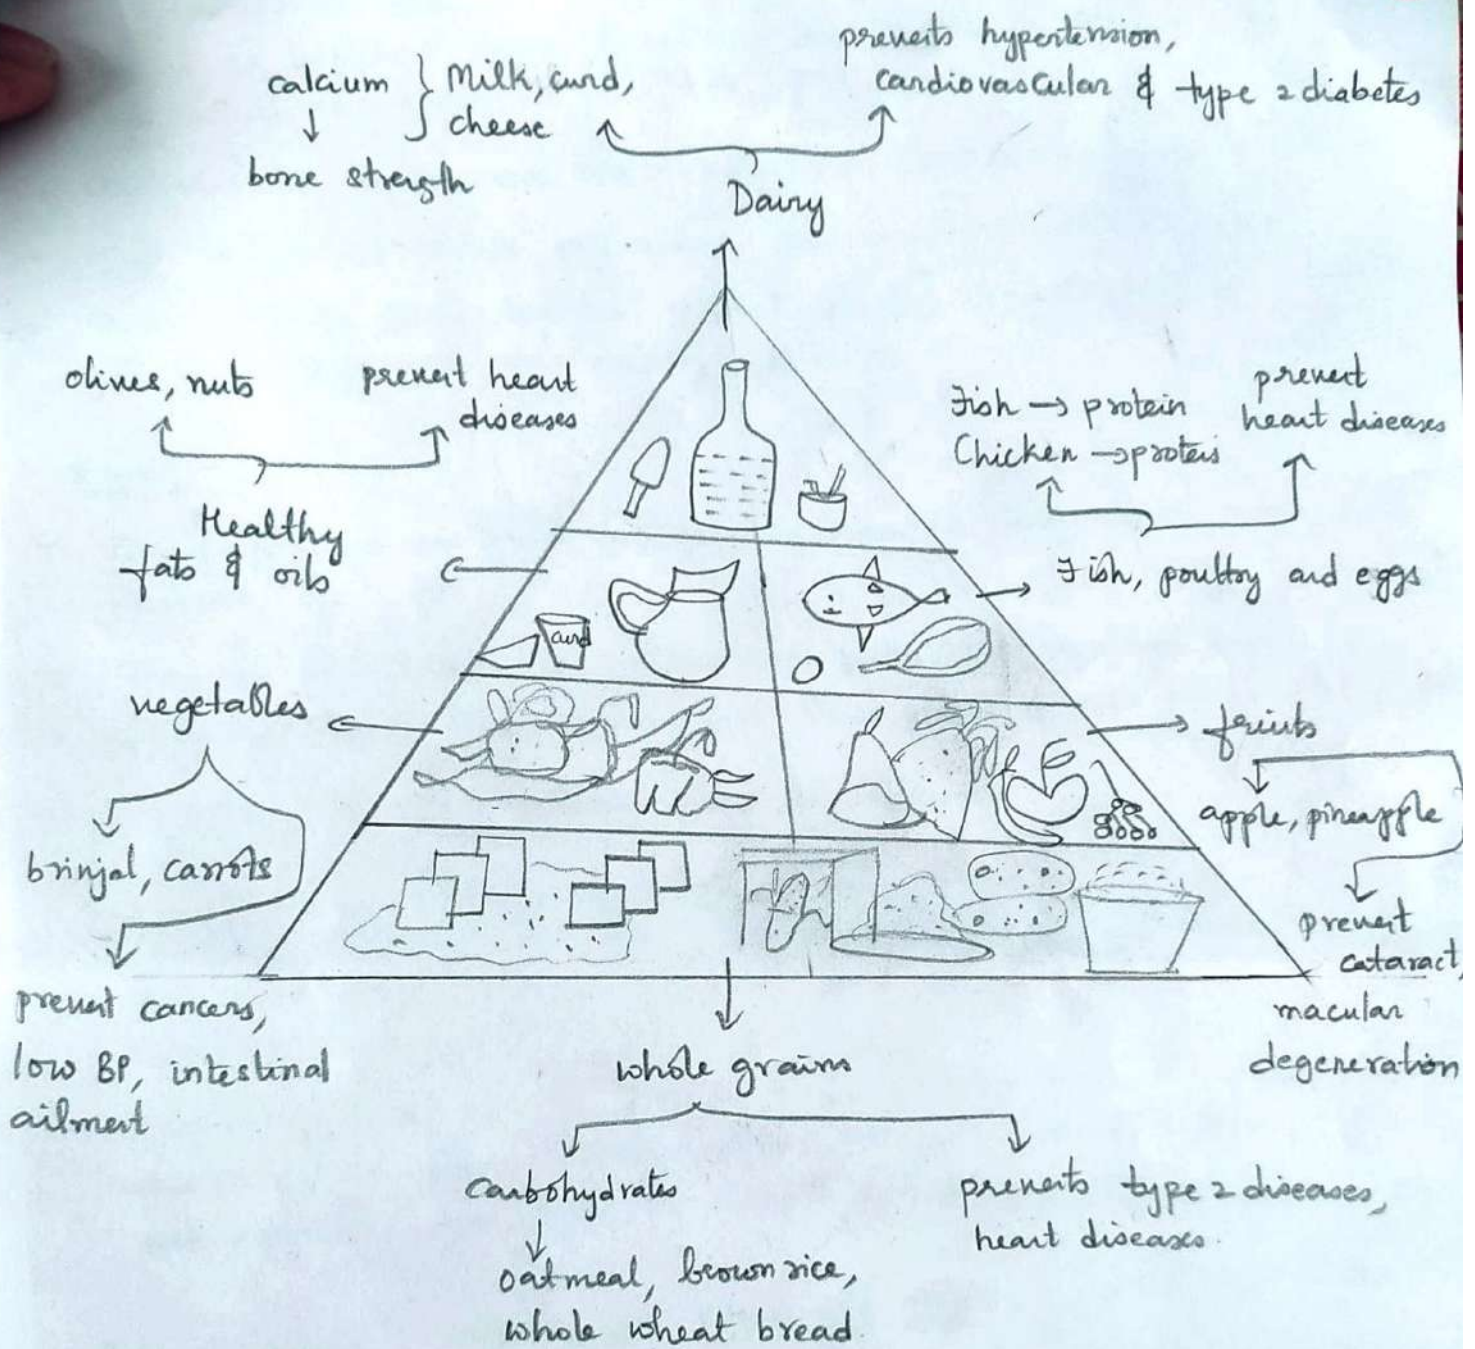 prevents hypertension,
cardiovascular & type 2 diabetes
calcium } Milk, curd,
cheese
↓
bone strength
Dairy
olives, nuts
prevent heart
diseases
Healthy
fats & oils
Fish → protein
Chicken → protein
prevent
heart diseases
Fish, poultry and eggs
curd
vegetables
brinjal, carrots
prevent cancers,
low BP, intestinal
ailment
fruits
apple, pineapple
prevent
cataract,
macular
degeneration
whole grains
Carbohydrates
↓
oatmeal, brown rice,
whole wheat bread
prevents type 2 diseases,
heart diseases.